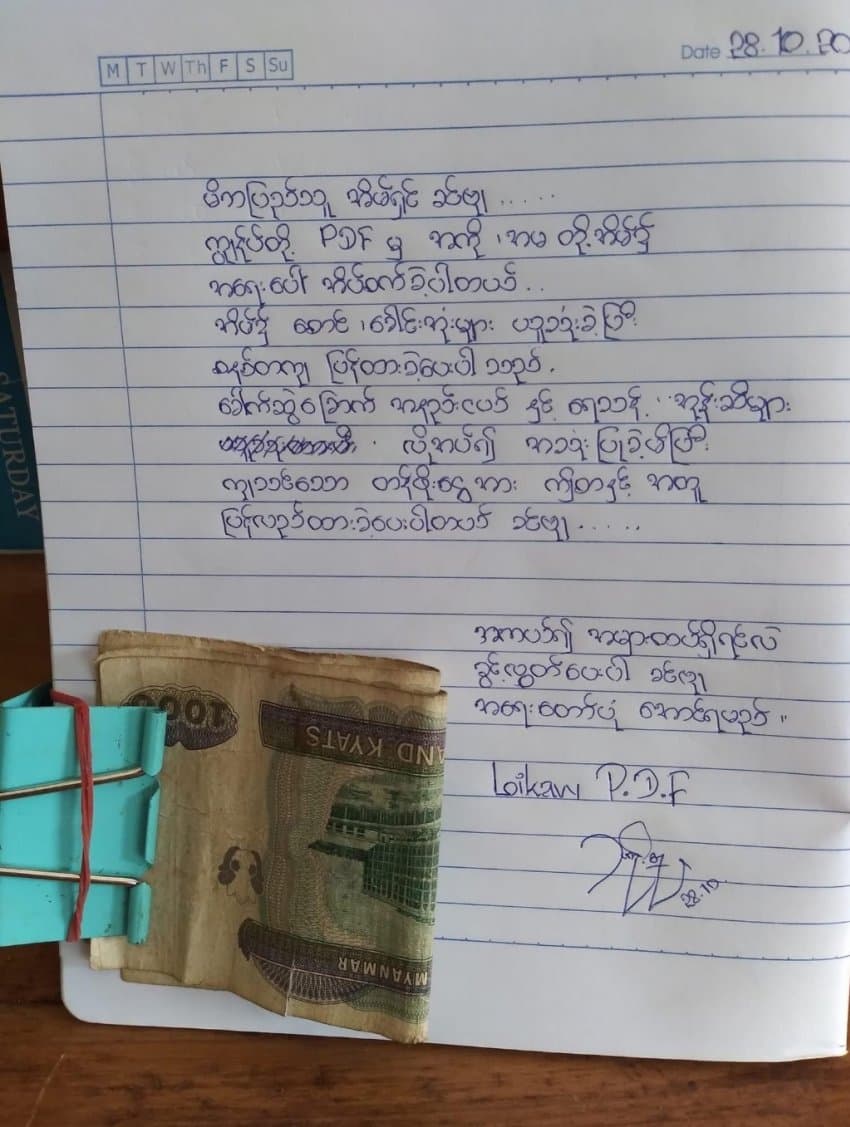 M T W Th F S Su
Date 28.10.20
မိဘပြည်သူ အိမ်ရှင် ခင်ဗျ.....
ကျွန်ုပ်တို့ PDF မှ အကို၊အမ တို့အိမ်၌
အရေးပေါ် အိပ်စက်ခဲ့ပါတယ်..
အိမ်၌ စောင်၊ခေါင်းအုံးများ ယူသုံးခဲ့ပြီး
စနစ်တကျ ပြန်ထားခဲ့ပေးပါသည်.
ခေါက်ဆွဲခြောက် အနည်းငယ် နှင့် ရေသန့်..အုန်းဆီများ
လိုအပ်၍ အသုံးပြုခဲ့မိပြီး
ကျသင့်သော တန်ဖိုးငွေအား ဤစာနှင့် အတူ
ပြန်လည်ထားခဲ့ပေးပါတယ် ခင်ဗျ......
အကယ်၍ အမှားတစ်ရှိရင်လဲ
ခွင့်လွှတ်ပေးပါ ခင်ဗျ
အရေးတော်ပုံ အောင်ရမည်။
Loikaw P.D.F
28.10
1000
AND KYATS
MYANMAR
SATURDAY